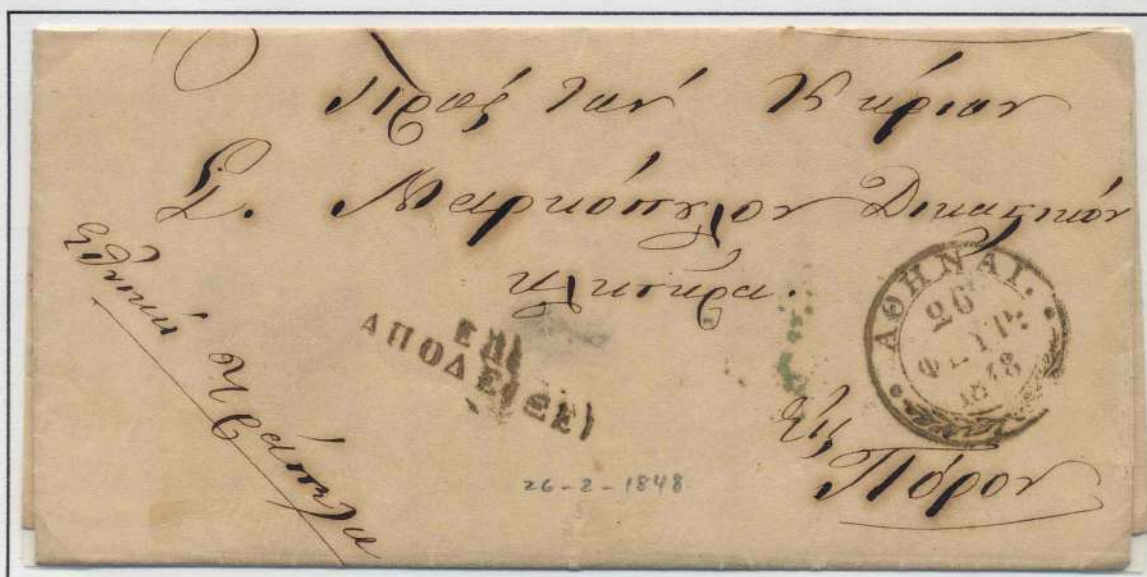 Πρὸς τὸν Κύριον
Σ. Μαρκόπουλον Δικαστικὸν
κλητῆρα.
Ἐθνικὴ Τράπεζα
ΕΠΙ
ΑΠΟΔΕΙΞΕΙ
ΑΘΗΝΑΙ.
26
ΦΕΥΡ.
1848
Εἰς
Πόρον
26-2-1848